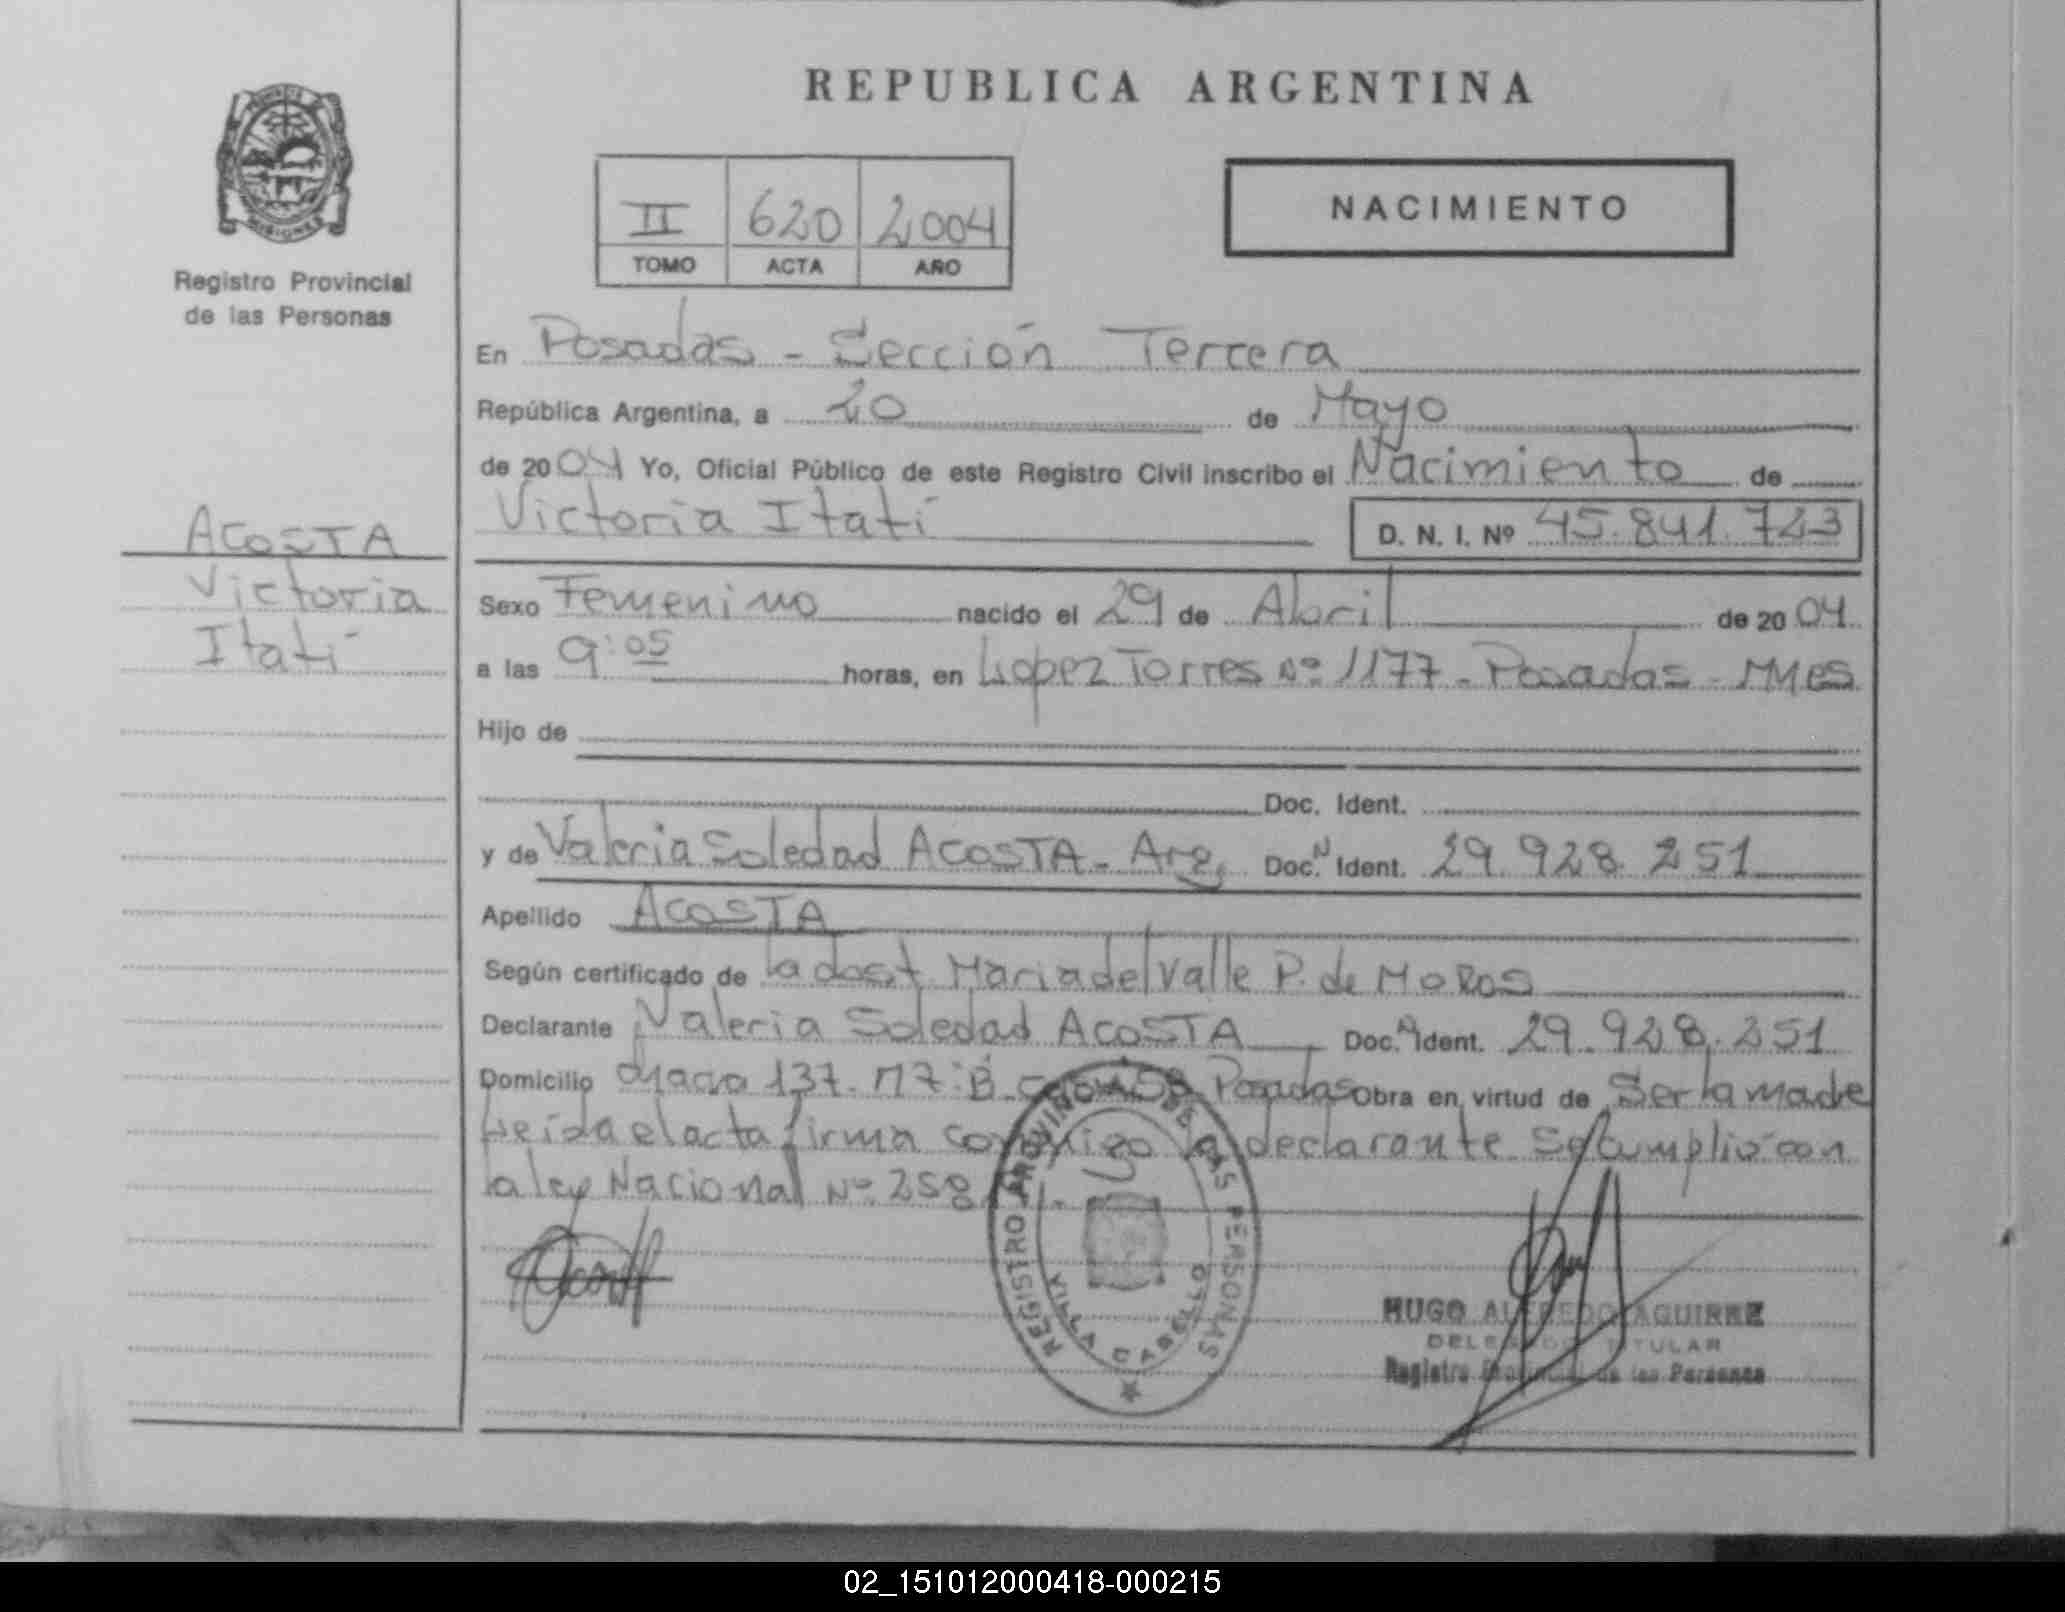 REPUBLICA ARGENTINA
PROVINCIA DE MISIONES
Registro Provincial
de las Personas
II 620 2004
TOMO ACTA AÑO
NACIMIENTO
En Posadas - Sección Tercera
República Argentina, a 20 de Mayo
de 2004 Yo, Oficial Público de este Registro Civil inscribo el Nacimiento de
Victoria Itatí D. N. I. Nº 45.841.723
ACOSTA
Victoria
Itatí
Sexo Femenino nacido el 29 de Abril de 2004
a las 9:05 horas, en López Torres Nº 1177 - Posadas - Mnes
Hijo de
Doc. Ident.
y de Valeria Soledad ACOSTA - Arg. Doc. N Ident. 29.928.251
Apellido ACOSTA
Según certificado de la dost. Maria del Valle P. de MOROS
Declarante Valeria Soledad ACOSTA Doc. N Ident. 29.928.251
Domicilio chacra 137. Mz: B. casa 58 Posadas Obra en virtud de Ser la madre
Leída el acta firma conmigo la declarante Se cumplió con
la ley Nacional Nº 258
REGISTRO PROVINCIAL DE LAS PERSONAS
VILLA CABELLO
HUGO ALFREDO AGUIRRE
DELEGADO TITULAR
Registro Provincial de las Personas
02_151012000418-000215